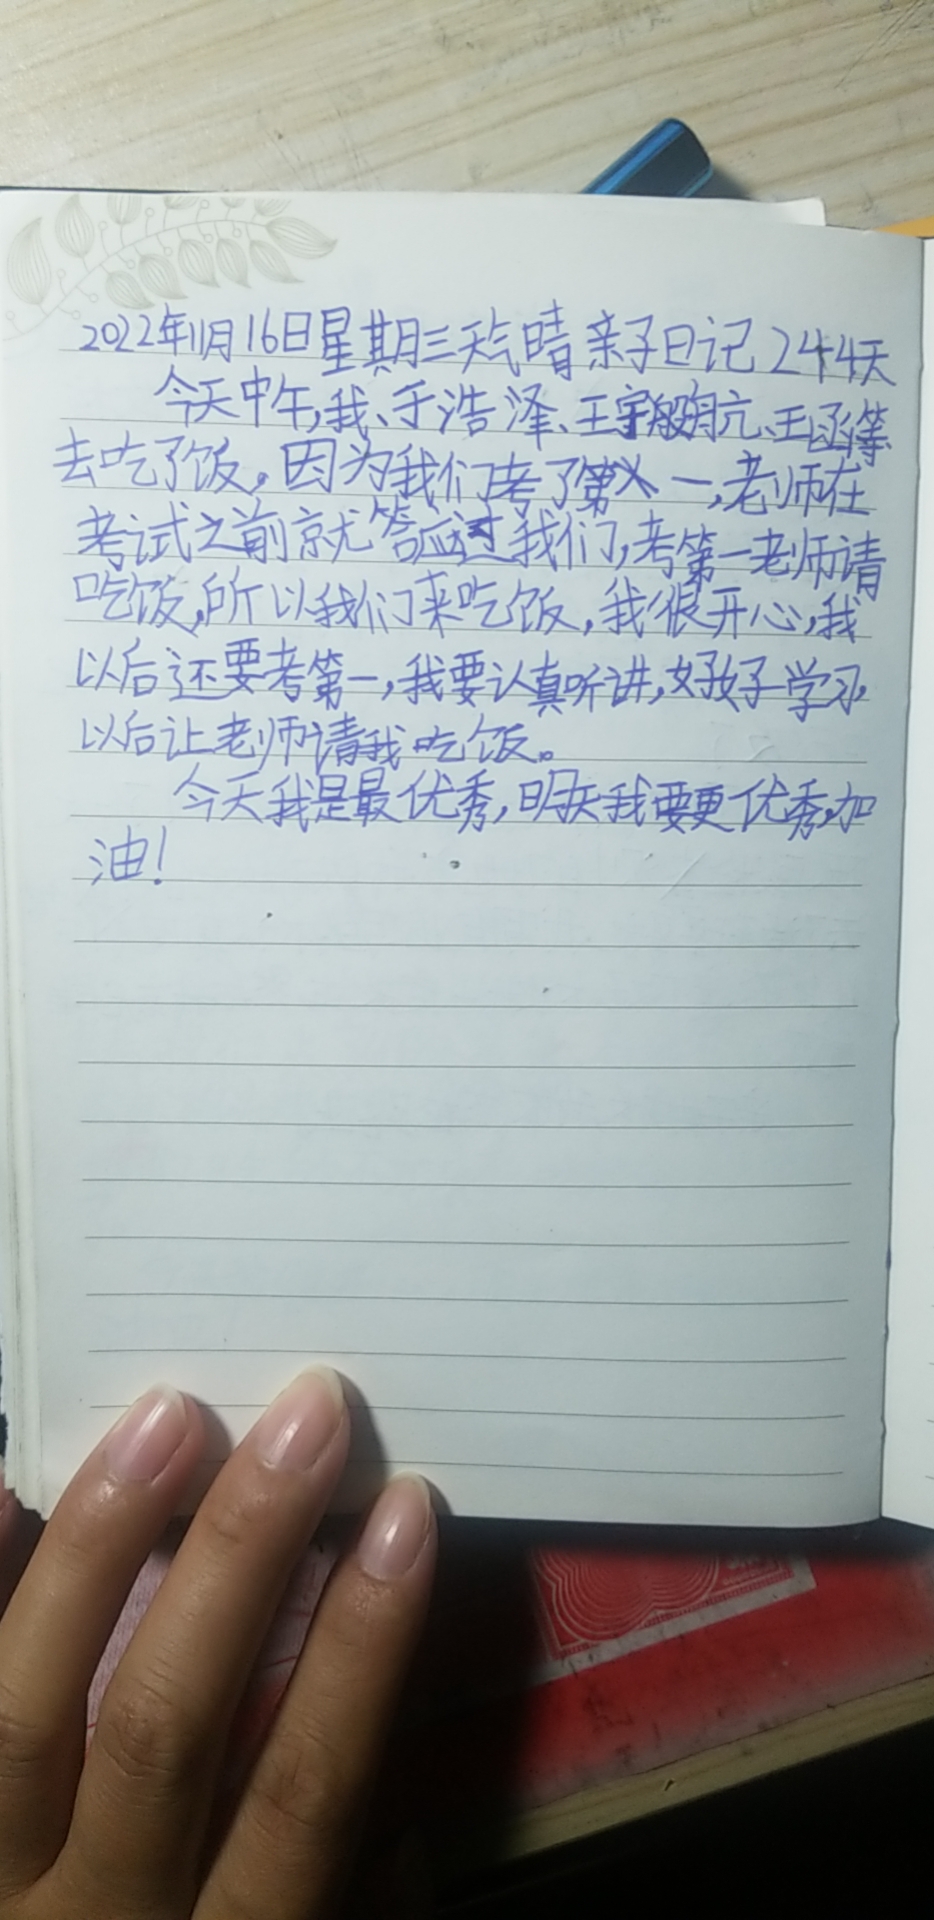 2022年11月16日星期三天气晴亲子日记244天
今天中午,我、于浩泽、王宇航、亢、王函等
去吃了饭。因为我们考了第一,老师在
考试之前就答应过我们,考第一老师请
吃饭,所以我们来吃饭,我很开心,我
以后还要考第一,我要认真听讲,好好学习,
以后让老师请我吃饭。
今天我是最优秀,明天我要更优秀,加
油!